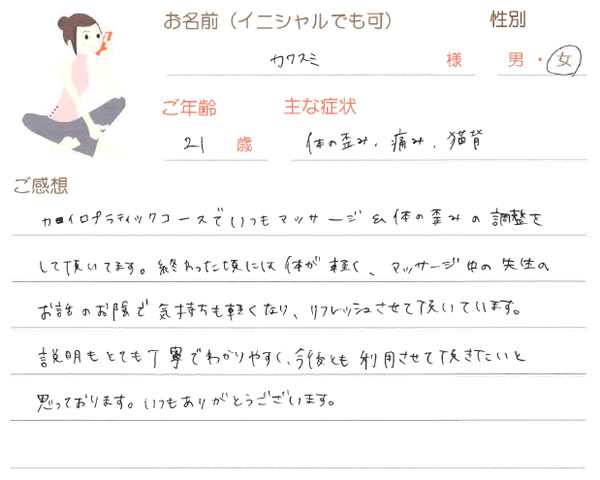 お名前（イニシャルでも可） 性別
カワスミ 様 男・女
ご年齢 主な症状
21 歳 体の歪み、痛み、猫背
ご感想
カイロプラティックコースでいつもマッサージ&体の歪みの調整を
して頂いてます。終わった頃には体が軽く、マッサージ中の先生の
お話のお陰で気持ちも軽くなり、リフレッシュさせて頂いています。
説明もとても丁寧でわかりやすく、今後とも利用させて頂きたいと
思っております。いつもありがとうございます。